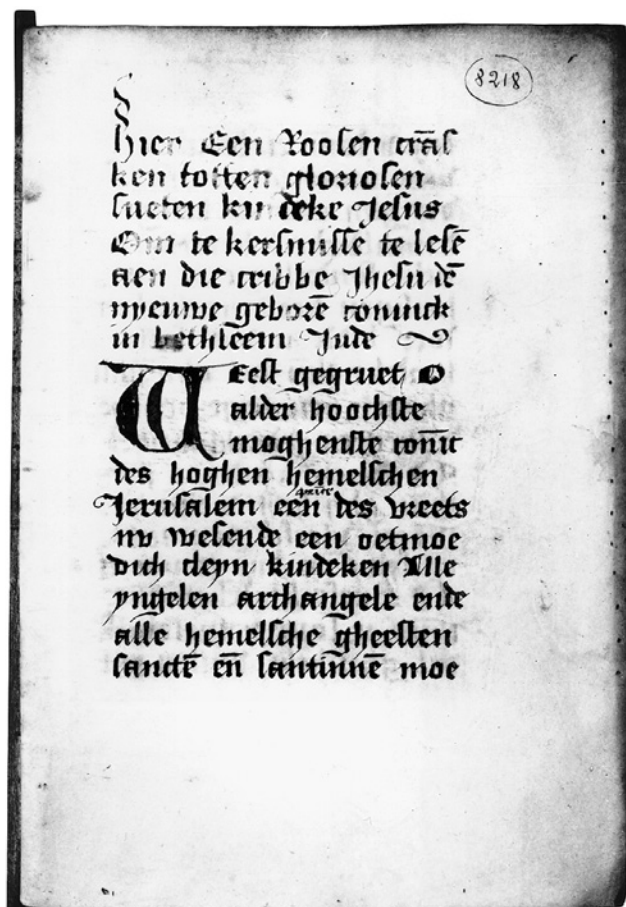 8218
hier Een Roosen crāſ
ken totten glorioſen
ſueten kindeke Jeſus
Om te kerſmiſſe te leſē
aen die cribbe Jheſu dē
nyeuwe geborē coninck
in bethleem Jude
WEeſt gegruet O
alder hoochſte
moghenſte conīc
des hoghen hemelſchen
Jeruſalem een des vreets
nv weſende een oetmoe
dich cleyn kindeken Alle
yngelen archangele ende
alle hemelſche gheeſten
ſanctē eñ ſantinnē moe